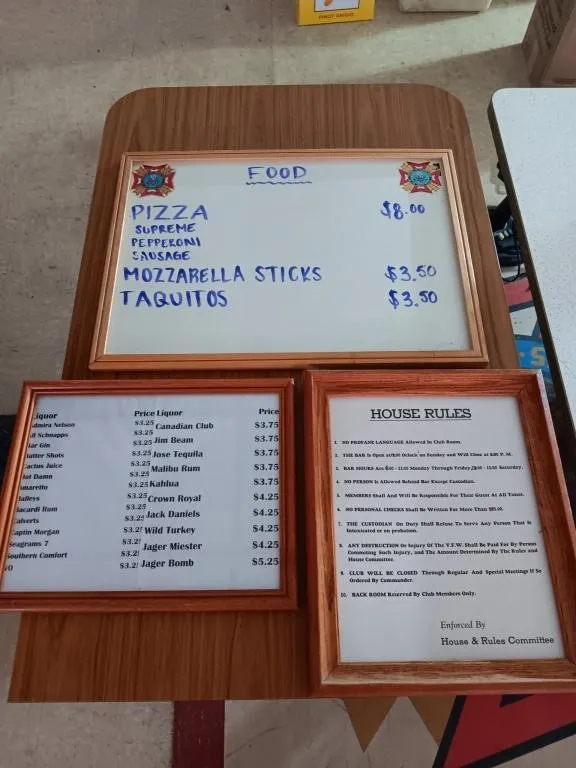 PINOT GRIGIO
FOOD
PIZZA $8.00
SUPREME
PEPPERONI
SAUSAGE
MOZZARELLA STICKS $3.50
TAQUITOS $3.50
iquor Price Liquor Price
dmira Nelson $3.25 Canadian Club $3.75
ll Schnapps $3.25 Jim Beam $3.75
ar Gin $3.25 Jose Tequila $3.75
utter Shots $3.25 Malibu Rum $3.75
actus Juice $3.25 Kahlua $3.75
maretto $3.25 Crown Royal $4.25
aileys $3.25 Jack Daniels $4.25
acardi Rum $3.25 Wild Turkey $4.25
alverts $3.25 Jager Miester $4.25
aptin Morgan $3.25 Jager Bomb $5.25
eagrams 7 $3.25
outhern Comfort $3.2
VO $3.2
ot Damn
HOUSE RULES
1. NO PROFANE LANGUAGE Allowed In Club Room.
2. THE BAR Is Open at O'clock on Sunday and Will Close at P. M.
3. BAR HOURS Are - 11:00 Monday Through Friday, - 12:00 Saturday.
4. NO PERSON Is Allowed Behind Bar Except Custodian.
5. MEMBERS Shall And Will Be Responsible For Their Guest At All Times.
6. NO PERSONAL CHECKS Shall Be Written For More Than
7. THE CUSTODIAN On Duty Shall Refuse To Serve Any Person That Is
Intoxicated or on probation.
8. ANY DESTRUCTION Or Injury Of The V.F.W. Shall Be Paid For By Person
Commiting Such Injury, and The Amount Determined By The Rules and
House Committee.
9. CLUB WILL BE CLOSED Through Regular And Special Meetings If So
Ordered By Commander.
10. BACK ROOM Reserved By Club Members Only.
Enforced By
House & Rules Committee